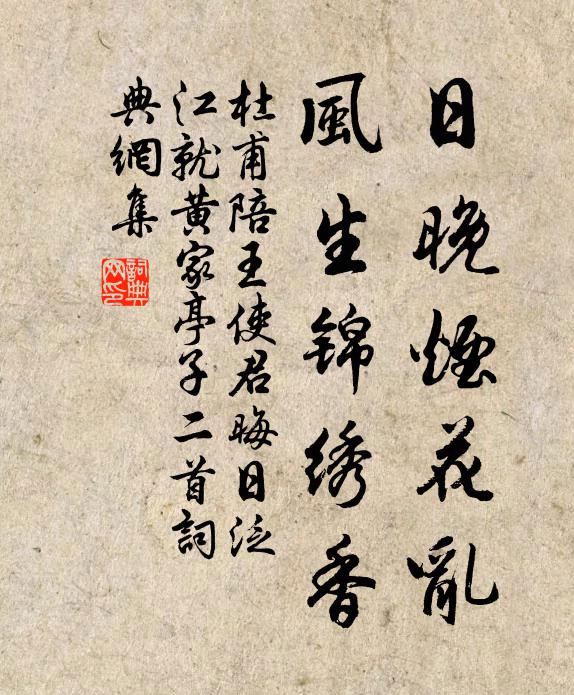 日晚煙花亂
風生锦绣香
杜甫陪王使君晦日泛
江就黄家亭子二首詞
典網集
詞典
网印